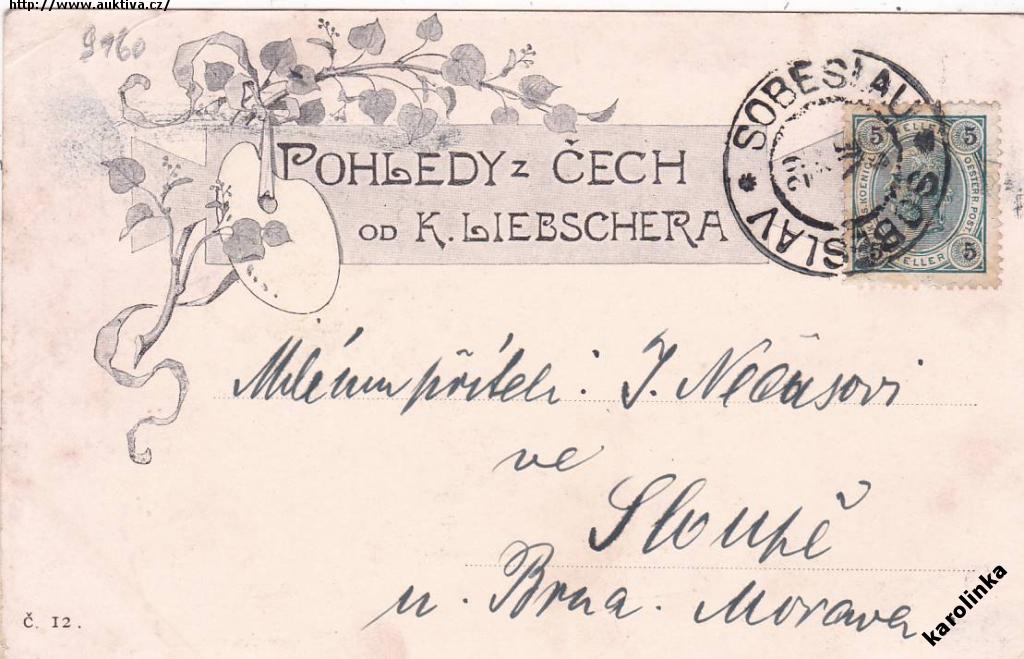 http://www.auktiva.cz/
9160
POHLEDY Z ČECH
OD K. LIEBSCHERA
* SOBESLAU * SOBĚSLAV
5 HELLER 5
5 HELLER 5
Milému příteli: J. Nečasovi
ve
Sloupě
u. Brna. Morava
Č. 12.
karolinka